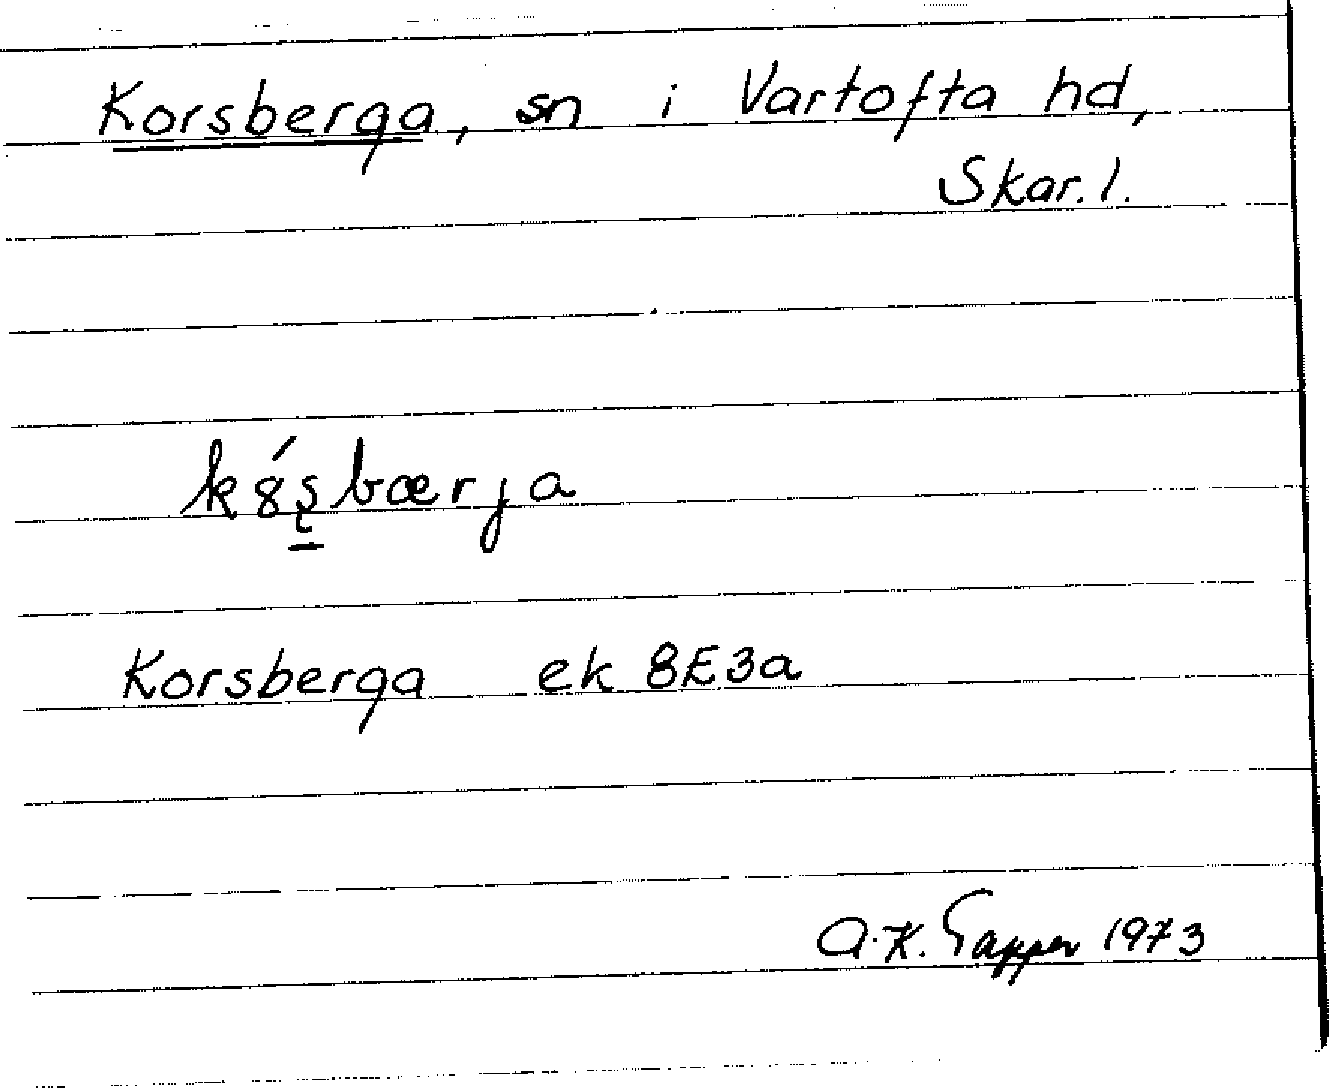 Korsberga, sn i Vartofta hd,
Skar. l.
k8́ʂbærja
Korsberga ek 8E3a
A.K. Tapper 1973